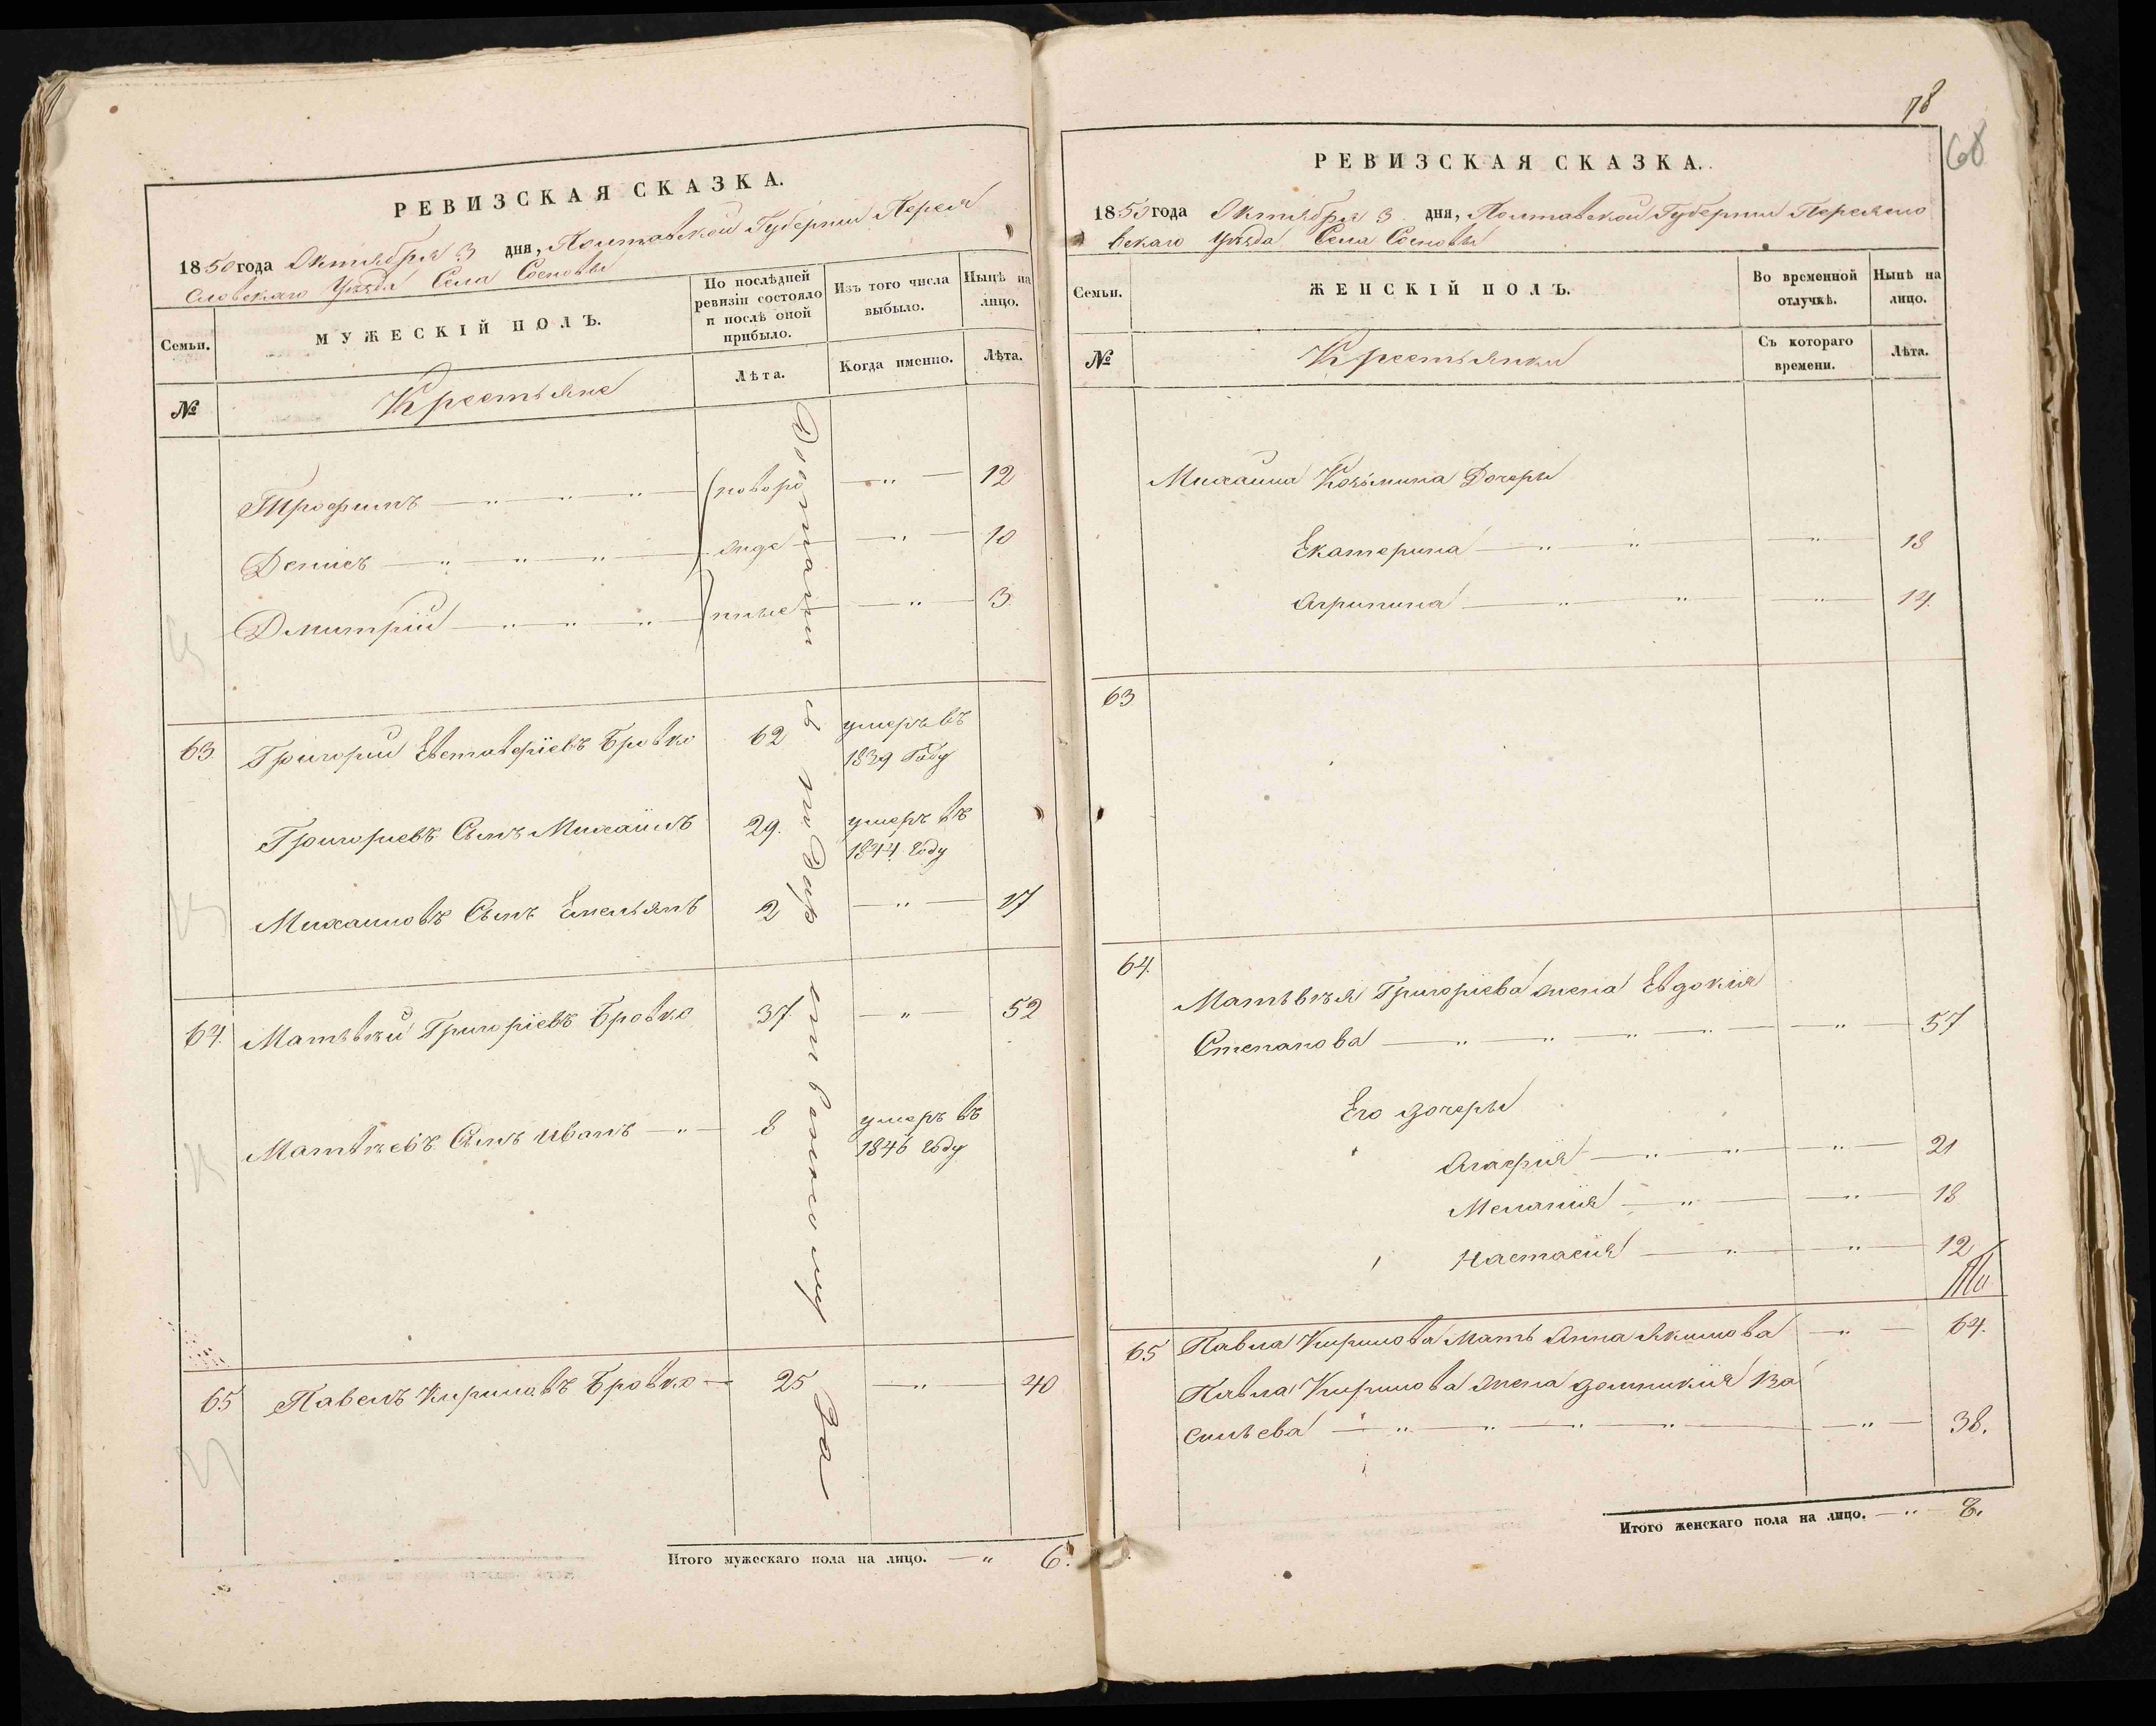 РЕВИЗСКАЯ СКАЗКА.
1850 года Октября 3 дня, Полтавской Губернии Перея
словскаго Уѣзда Села Сосновы
Семьи.
МУЖЕСКІЙ ПОЛЪ.
По послѣдней
ревизіи состояло
и послѣ оной
прибыло.
Изъ того числа
выбыло.
Нынѣ на
лицо.
№
Крестьяне
Лѣта.
Когда именно.
Лѣта.
Трофимъ — „ — „ — „ — новоро — „ — 12
Денисъ — „ — „ — „ — жде — „ — 10
Дмитрій — „ — „ — „ — нные — „ — 3.
63. Григорий Евстаѳеріевъ Бровко 62 умеръ въ
1839 Году
Григориевъ Сынъ Михаилъ 29. умеръ въ
1844 Году
Михаиловъ Сынъ Емельянъ 2 — „ — 17
64. Матьвѣй Григоріевъ Бровко 37 — „ — 52
Матвѣевъ Сынъ Иванъ — „ — 8 умеръ въ
1846 Году
65 Павелъ Кириловъ Бровко — 25 — „ — 40
Итого мужескаго пола на лицо. — „ 6.
78
68
РЕВИЗСКАЯ СКАЗКА.
1850 года Октября 3 дня, Полтавской Губернии Переясло
вскаго Уѣзда Села Сосновы
Семьи.
ЖЕНСКІЙ ПОЛЪ.
Во временной
отлучкѣ.
Нынѣ на
лицо.
№
Крестьянки
Съ котораго
времени.
Лѣта.
Михаила Козьмина Дочеры
Екатерина — „ — „ — „ — 18
Агрипина — „ — „ — „ — 14.
63
64.
Матьвѣя Григоріева жена Евдокия
Степанова — „ — „ — „ — „ — 57
Его дочеры
Агафия — „ — „ — „ — 21
Мелания — „ — „ — 18
Настасия — „ — „ — 12
65 Павла Кирилова Мать Анна Якимова — „ — 64.
Павла Кирилова жена домникия Ва
сильева — „ — „ — „ — „ — „ — 38.
Итого женскаго пола на лицо. — „ — 8.